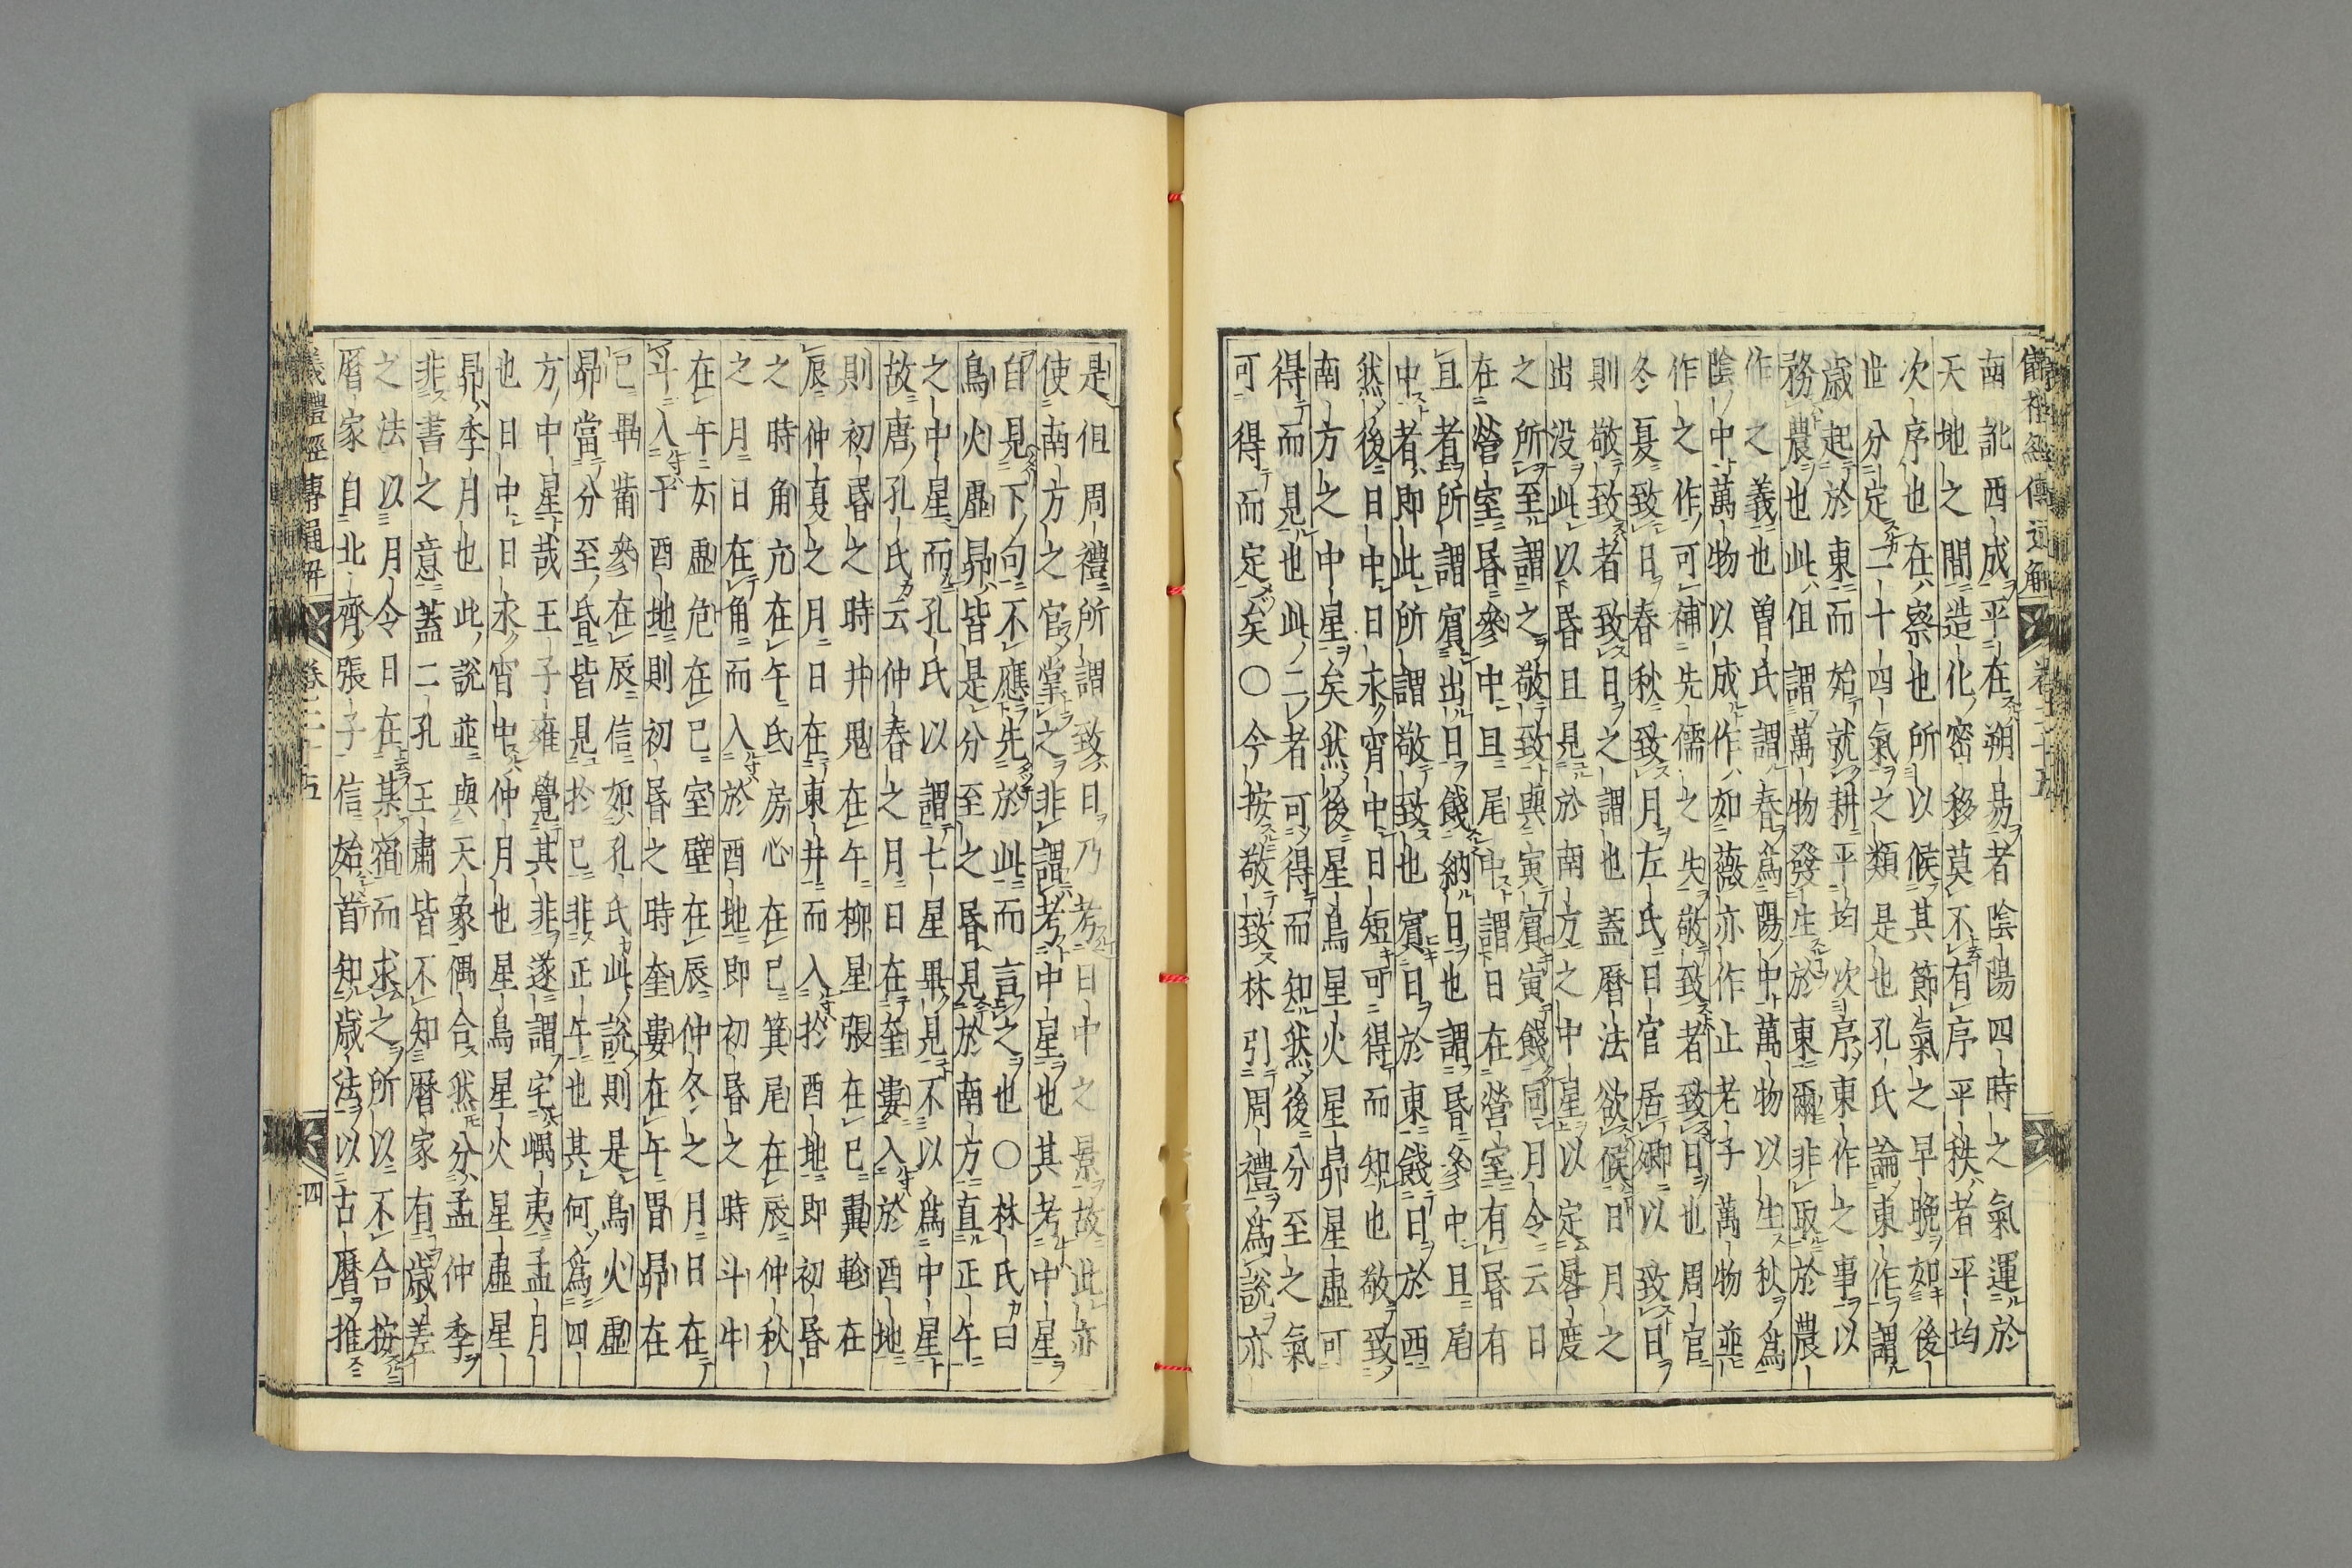 儀禮經傳通解 卷二十五
南訛西成平在朔易者陰陽四時之氣運於
天地之間造化密移莫不有序平秩者平均
次序也在察也所以候其節氣之早晚如後
世分定二十四氣之類是也孔氏論東作謂
歳起於東而始就耕平均次序東作之事以
務農也此但謂萬物發生於東爾非取於農
作之義也曽氏謂春爲陽中萬物以生秋爲
陰中萬物以成作如薇亦作止老子萬物並
作之作可補先儒之失敬致者致日也周官
冬夏致日春秋致月左氏日官居卿以致日
則敬致者致日之謂也蓋曆法欲候日月之
出没此以昏旦見於南方之中星以定晷度
之所至謂之敬致與寅賓寅餞同月令云日
在營室昏參中旦尾中謂日在營室有昏有
旦者所謂賓出日餞納日也謂昏參中旦尾
中者即此所謂敬致也賓日於東餞日於西
然後日中日永宵中日短可得而知也敬致
南方之中星矣然後星鳥星火星昴星虛可
得而見也此二者可得而知然後分至之氣
可得而定矣○今按敬致林引周禮爲說亦
是但周禮所謂致日乃考日中之景故此亦
使南方之官掌之非謂考中星也其考中星
自見下句不應先於此而言之也○林氏曰
鳥火虛昴皆是分至之昏見於南方直正午
之中星而孔氏以謂七星畢見不以爲中星
故唐孔氏云仲春之月日在奎婁入於酉地
則初昏之時井鬼在午柳星張在巳翼軫在
辰仲夏之月日在東井而入於酉地即初昏
之時角亢在午氐房心在巳箕尾在辰仲秋
之月日在角而入於酉地即初昏之時斗牛
在午女虛危在巳室壁在辰仲冬之月日在
斗入于酉地則初昏之時奎婁在午胃昴在
巳畢觜參在辰信如孔氏此說則是鳥火虛
昴當分至之昏皆見於巳非正午也其何爲四
方中星哉王子雍覺其非遂謂宅嵎夷孟月
也日中日永宵中仲月也星鳥星火星虛星
昴季月也此說並與天象偶合然分孟仲季
非書之意蓋二孔王肅皆不知曆家有歳差
之法以月令日在某宿而求之所以不合按
曆家自北齊張子信始首知歳法以古曆推
儀禮經傳通解 卷二十五 四